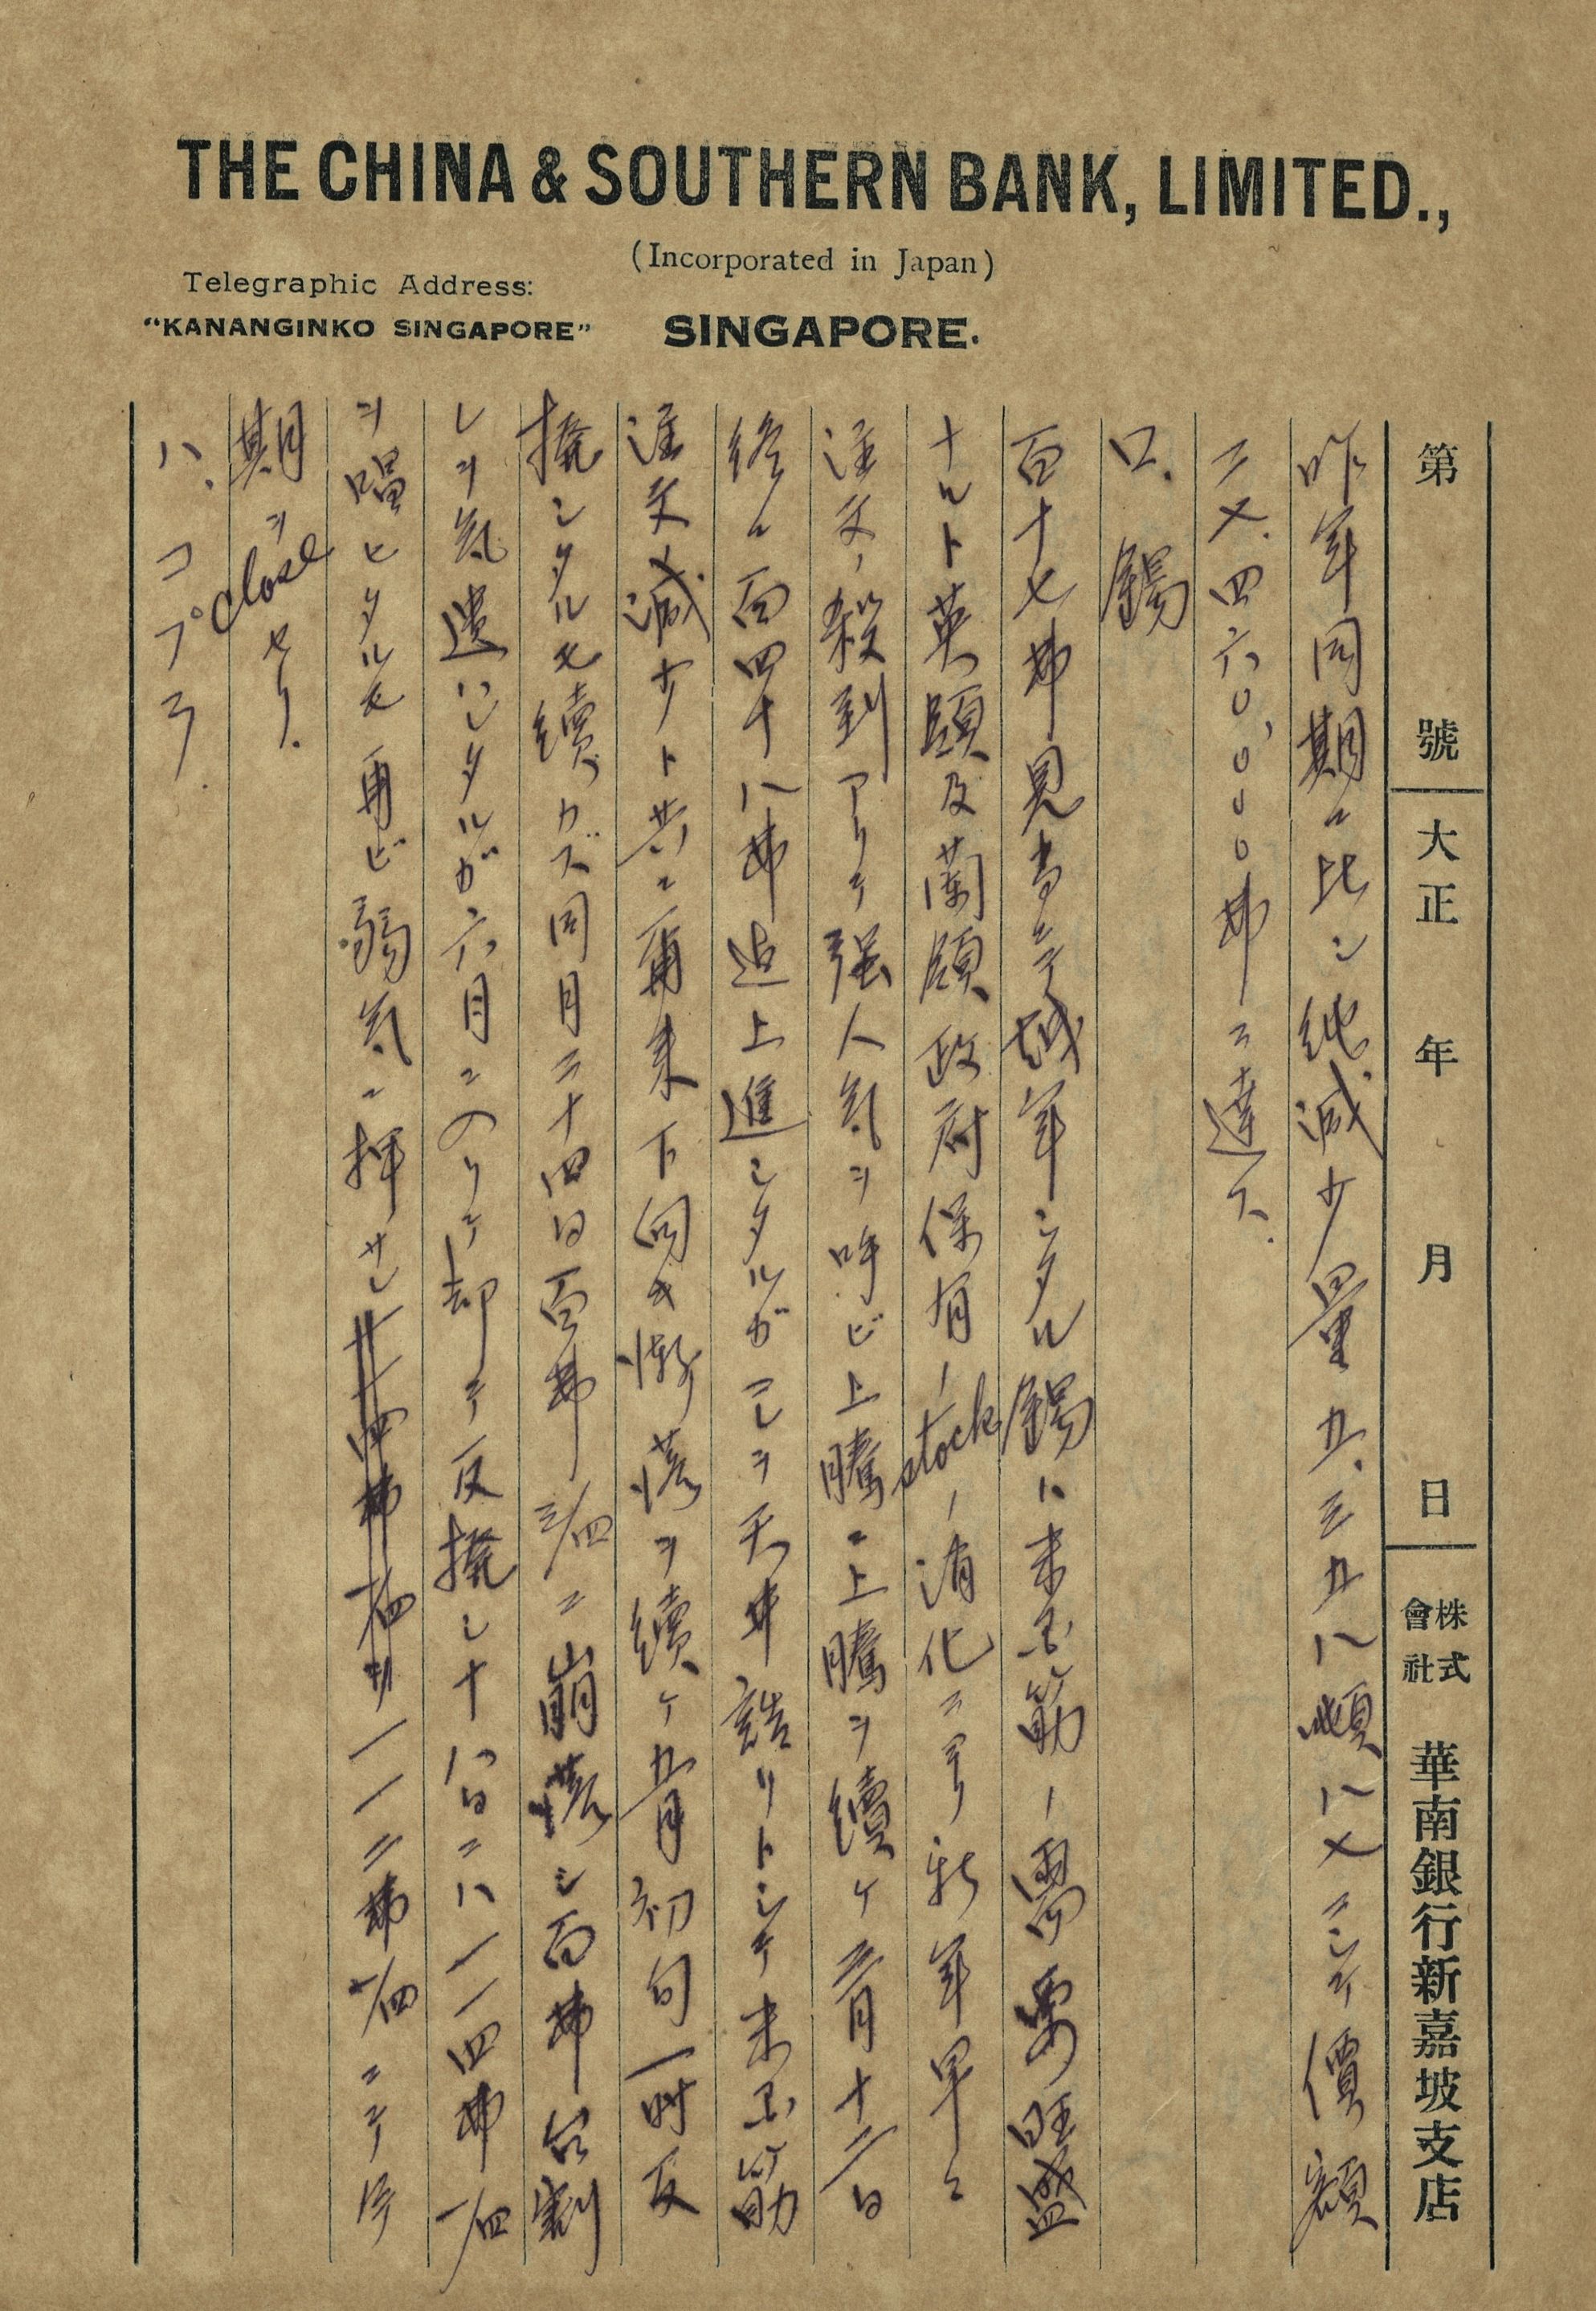 THE CHINA & SOUTHERN BANK, LIMITED.,
(Incorporated in Japan)
Telegraphic Address:
"KANANGINKO SINGAPORE"
SINGAPORE.
第 號 大正 年 月 日 株式會社 華南銀行新嘉坡支店
昨年同期ニ比シ純減少量五.三五八噸八七ニシテ價額
二七.四六〇,〇〇〇弗ニ達ス.
ロ. 錫
百十七弗見當ニテ越年シタル錫ハ米國筋ノ需要旺盛
ナルト英領及蘭領政府保有ノstockノ消化ニヨリ新年早々
注文ノ殺到アリテ强人氣ヲ呼ビ上騰ニ上騰ヲ續ケ三月十二日
終ニ百四十八弗迄上進シタルガコレヲ天井誥リトシテ米國筋
注文減少ト共ニ爾来下向キ漸落ヲ續ケ五月初旬一時反
撥シタルモ續カズ同月二十四日百弗三/四ニ崩落シ百弗台割
レヲ氣遣ハレタルガ六月ニノリテ却テ反撥シ十八日ニハ一一四弗一/四
ヲ唱ヒタルモ再ビ弱氣ニ押サレ一一二弗一/四ニテ今
期ヲcloseセリ.
ハ. コプラ.